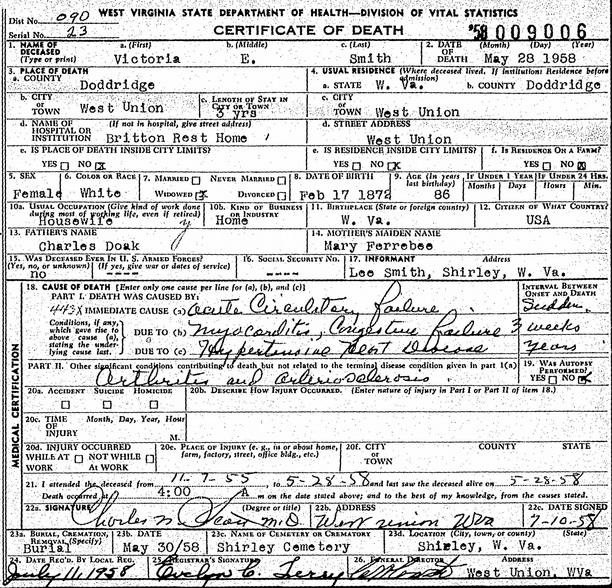 WEST VIRGINIA STATE DEPARTMENT OF HEALTH—DIVISION OF VITAL STATISTICS
Dist No. 090
Serial No. 23
CERTIFICATE OF DEATH
58 009006
1. NAME OF DECEASED (Type or print) a. (First) b. (Middle) c. (Last) 2. DATE OF DEATH (Month) (Day) (Year)
Victoria E. Smith May 28 1958
3. PLACE OF DEATH 4. USUAL RESIDENCE (Where deceased lived. If institution: Residence before admission)
a. COUNTY Doddridge a. STATE W. Va. b. COUNTY Doddridge
b. CITY OR TOWN West Union c. LENGTH OF STAY IN CITY OR TOWN 3 yrs c. CITY OR TOWN West Union
d. NAME OF HOSPITAL OR INSTITUTION (If not in hospital, give street address) Britton Rest Home d. STREET ADDRESS West Union
e. IS PLACE OF DEATH INSIDE CITY LIMITS? YES NO X e. IS RESIDENCE INSIDE CITY LIMITS? YES NO X f. IS RESIDENCE ON A FARM? YES NO X
5. SEX Female 6. COLOR OR RACE White 7. MARRIED NEVER MARRIED WIDOWED X DIVORCED 8. DATE OF BIRTH Feb 17 1872 9. AGE (In years last birthday) 86 IF UNDER 1 YEAR Months Days IF UNDER 24 HRS. Hours Min.
10a. USUAL OCCUPATION (Give kind of work done during most of working life, even if retired) Housewife 10b. KIND OF BUSINESS OR INDUSTRY Home 11. BIRTHPLACE (State or foreign country) W. Va. 12. CITIZEN OF WHAT COUNTRY? USA
13. FATHER'S NAME 14. MOTHER'S MAIDEN NAME
Charles Doak Mary Ferrebee
15. WAS DECEASED EVER IN U. S. ARMED FORCES? (Yes, no, or unknown) (If yes, give war or dates of service) 16. SOCIAL SECURITY NO. 17. INFORMANT Address
no ---- ---- Lee Smith, Shirley, W. Va.
MEDICAL CERTIFICATION
18. CAUSE OF DEATH [Enter only one cause per line for (a), (b), and (c)] INTERVAL BETWEEN ONSET AND DEATH
PART I. DEATH WAS CAUSED BY:
443X IMMEDIATE CAUSE (a) Acute Circulatory failure Sudden
Conditions, if any, which gave rise to above cause (a), stating the underlying cause last.
DUE TO (b) Myocarditis, Congestive failure 3 weeks
DUE TO (c) Hypertensive Heart Disease years
PART II. Other significant conditions contributing to death but not related to the terminal disease condition given in part 1(a) 19. WAS AUTOPSY PERFORMED? YES NO X
Arthritis and arteriosclerosis
20a. ACCIDENT SUICIDE HOMICIDE 20b. DESCRIBE HOW INJURY OCCURRED. (Enter nature of injury in Part I or Part II of item 18.)
20c. TIME OF INJURY Month, Day, Year, Hour M.
20d. INJURY OCCURRED WHILE AT WORK NOT WHILE AT WORK 20e. PLACE OF INJURY (e. g., in or about home, farm, factory, street, office bldg., etc.) 20f. CITY OR TOWN COUNTY STATE
21. I attended the deceased from 11-7-55 to 5-28-58 and last saw the deceased alive on 5-28-58
Death occurred at 4:00 A m on the date stated above; and to the best of my knowledge, from the causes stated.
22a. SIGNATURE (Degree or title) 22b. ADDRESS 22c. DATE SIGNED
Charles M.D. West Union WVa 7-10-58
23a. BURIAL, CREMATION, REMOVAL (Specify) 23b. DATE 23c. NAME OF CEMETERY OR CREMATORY 23d. LOCATION (City, town, or county) (State)
Burial May 30/58 Shirley Cemetery Shirley, W.Va.
24. DATE REC'D. BY LOCAL REG. 25. REGISTRAR'S SIGNATURE 26. FUNERAL DIRECTOR ADDRESS
July 11, 1958 Evelyn C. Terry West Union, WVa